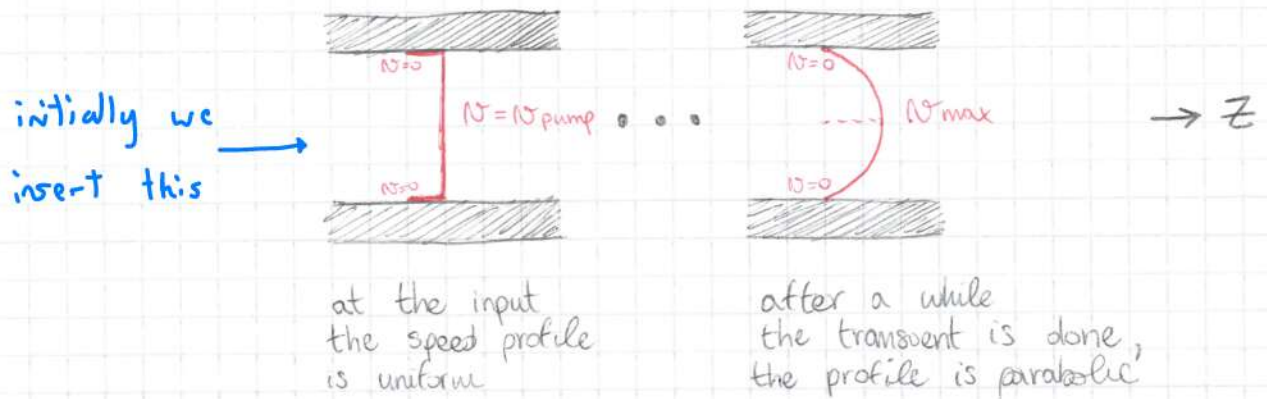 initially we
insert this
v=0
v=v pump
v=0
v=0
v max
v=0
→ z
at the input
the speed profile
is uniform
after a while
the transient is done,
the profile is parabolic